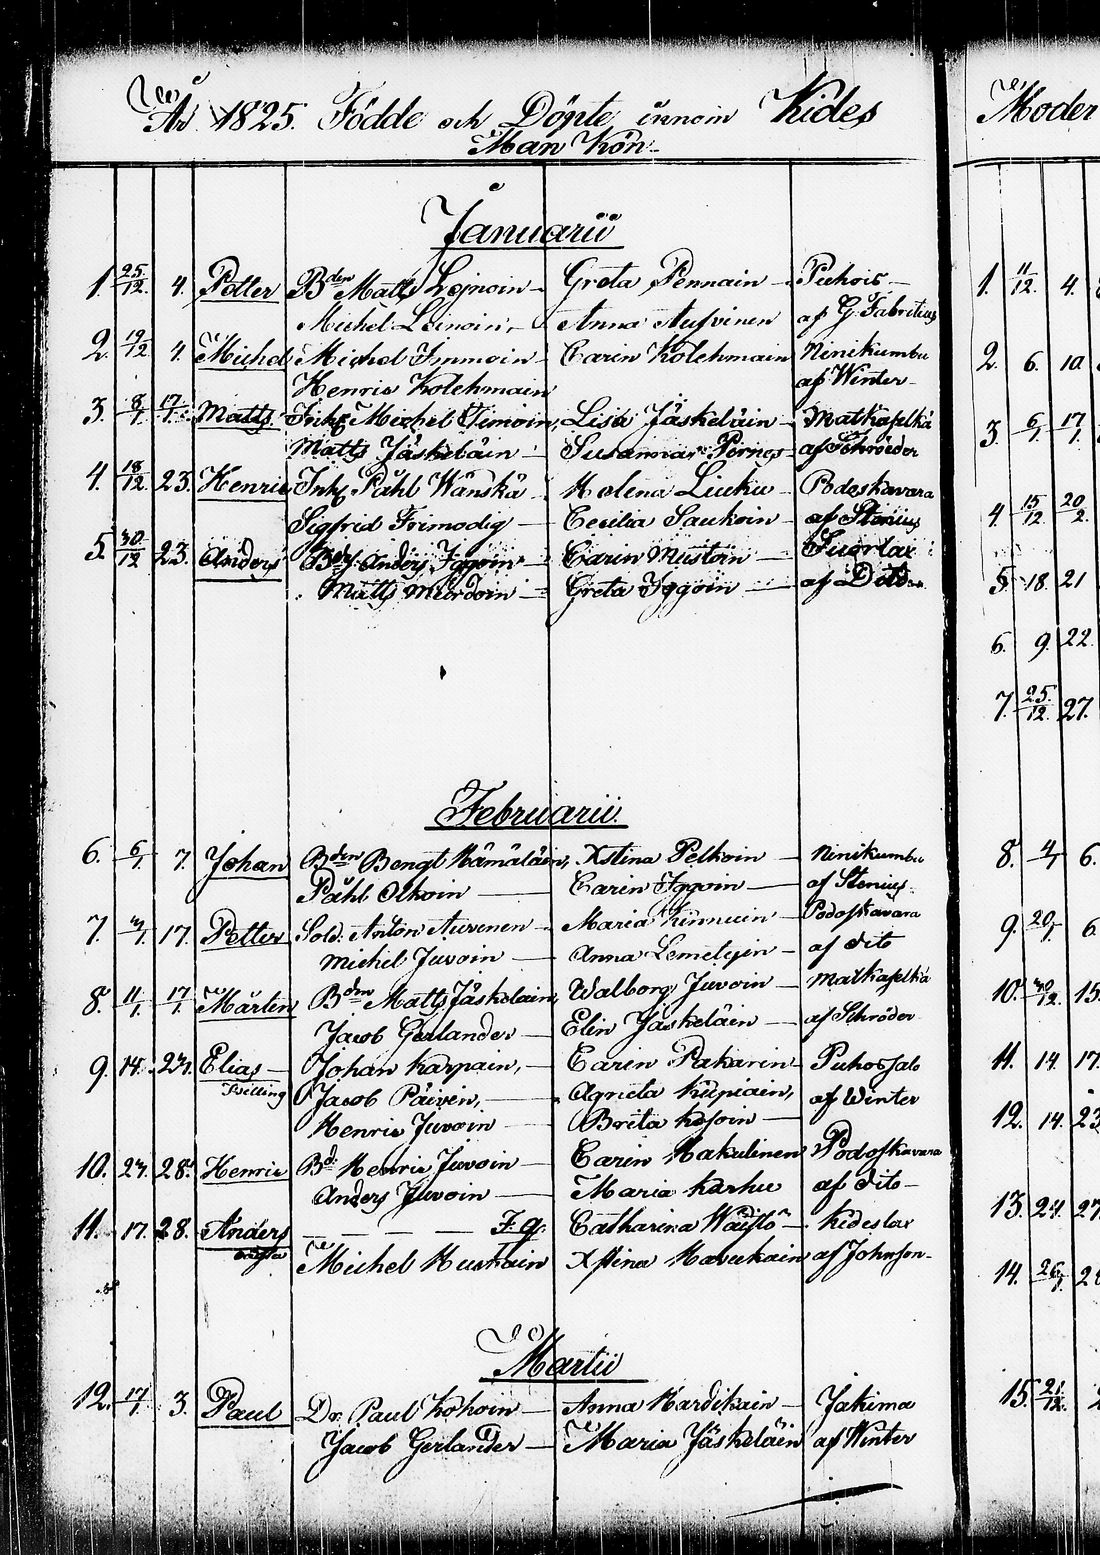 År 1825. Födde och Döpte innom Kides
Man Kön
Moder
Januarii
1. 25/12. 4. Petter Bden Matts Lojnoin Greta Pennain Puhois
Michel Leinoin Anna Aufvinen af G. Fabritius
2. 19/12 4. Michel Michel Immoin Carin Kolehmain Ninikumbu
Henric Kolehmain af Winter
3. 8/1 17/1. Matts Inh. Michel Timoin, Lisa Jäskeläin Matkaselkä
Matts Jäskeläin Susanna af Schröeder
4. 18/12. 23. Henric Inh. Påhl Wänskä Helena Liuku
Sigfrid Frimodig Cecilia Saukoin af Stenius
5. 30/12 23. Anders Anders Iggoin Carin Mustoin Suorlax
Matts Murdoin Greta Iggoin af Dito
Februarii.
6. 6/1 7. Johan Bden Bengt Hämäläin, Xstina Pelkoin Ninikumbu
Påhl Olkoin Carin Iggoin af Stenius
7. 17. Petter Sold. Anton Auvenen Maria Kinnuin Podoskavara
Michel Juvoin Anna Lemetyin af dito
8. 11/1 17/1. Mårten Bden Matts Jäskelain, Walborg Juvoin Matkaselkä
Jacob Gerlander Elin Jäskeläen af Schröder
9. 14. 24. Elias Johan Karpain, Carin Pakarin Puhossalo
Tvilling Jacob Päiven, Agneta Kupiain, af Winter
Henric Juvoin Brita Kosoin
10. 24. 28. Henric Bd. Henric Juvoin Carin Hakulinen Podoskavara
Anders Juvoin Maria Karhu af dito
11. 17. 28. Anders F.q. Catharina Kideslax
oäkta Michel Huskain Xstina Havukain af Johnson
Martii
12. 17/1 3. Paul Dr. Paul Kohoin Anna Hardikain Jakima
Jacob Gerlander Maria Jäskeläin af Winter
1. 11/12. 4.
2. 6. 10
3. 6/1 17/1.
4 15/12 20/2.
5. 18. 21
6. 9. 22.
7. 25/12. 27.
8. 4/1 6.
9. 20/1 6.
10. 30/12. 15.
11. 14. 17.
12. 14. 23
13. 24. 27
14. 26/1.
15. 21/12.